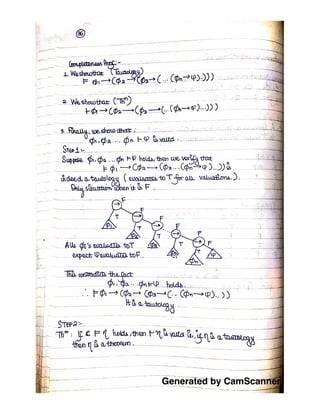 16
Completeness Proof:-
1. We show that (Tautology)
⊨ φ1 → (φ2 → (φ3 → (... (φn → ψ)...)))
2. We show that (Thm)
⊢ φ1 → (φ2 → (φ3 → (... (φn → ψ)...)))
3. Finally, we show that:
φ1, φ2 ... φn ⊢ ψ is valid.
Step 1:-
Suppose φ1, φ2 ... φn ⊨ ψ holds, then we verify that
⊨ φ1 → (φ2 → (φ3 ... (φn → ψ)...)) is
indeed a tautology (evaluates to T for all valuations.).
Only situation when it is F.
→ F
φ1 T → F
φ2 T → F
φ3 T → F
T → F
φn T ψ F
All φi's evaluates to T
expect ψ evaluates to F.
This contradicts the fact
φ1, φ2 ... φn ⊨ ψ holds.
∴ ⊨ φ1 → (φ2 → (φ3 → (... (φn → ψ)...))
It is a tautology
STEP 2:-
Thm: If ⊨ η holds, then ⊢ η is valid ie, if η is a tautology
then η is a theorem.
Generated by CamScanner